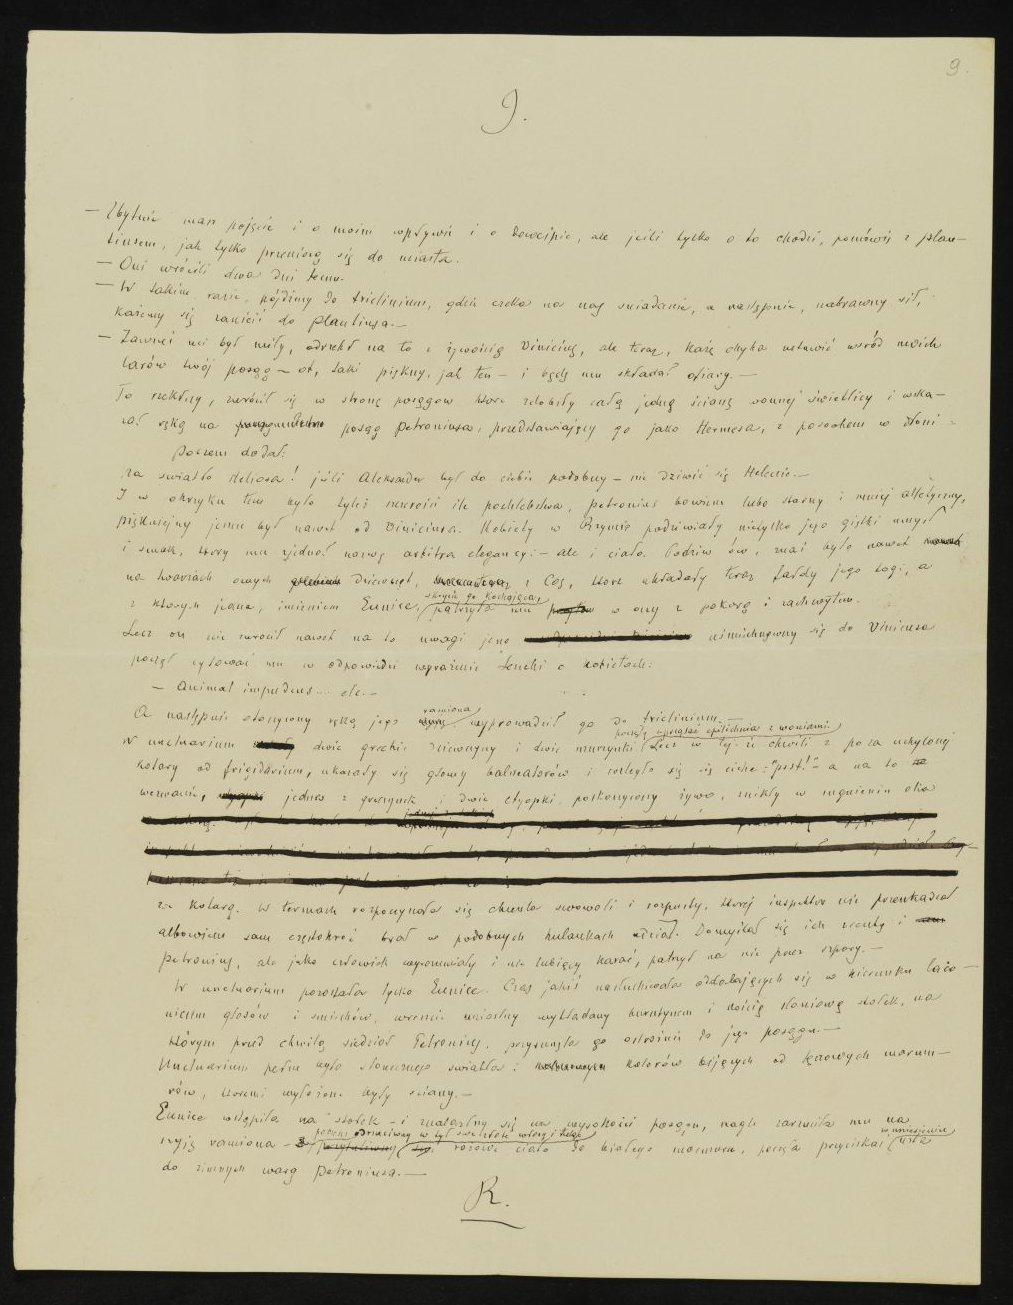 9.
9.
— Zbytnie masz pojęcie i o moim wpływie i o dowcipie, ale jeśli tylko o to chodzi, pomówię z Plau-
tiusem, jak tylko przeniosą się do miasta.
— Oni wrócili dwa dni temu.
— W takim razie, pójdźmy do triclinium, gdzie czeka na nas śniadanie, a następnie, nabrawszy sił,
każemy się zanieść do Plautiusa.—
— Zawsześ mi był miły, odrzekł na to z żywością Vinicius, ale teraz, każę chyba ustawić wśród moich
larów twój posąg — ot, taki piękny, jak ten — i będę mu składał ofiary.—
To rzekłszy, zwrócił się w stronę posągów które zdobiły całą jedną ścianę wonnej świetlicy i wska-
zał ręką na posąg Petroniusa, przedstawiający go jako Hermesa, z posochem w dłoni
Poczem dodał:
Na światło Heliosa! jeśli Aleksander był do ciebie podobny — nie dziwię się Helenie.—
I w okrzyku tym było tyleż szczerości ile pochlebstwa, Petronius bowiem lubo starszy i mniej atletyczny,
piękniejszy jeszcze był nawet od Viniciusa. Kobiety w Rzymie podziwiały nietylko jego giętki umysł
i smak, który mu zjednał nazwę arbitra elegancyi — ale i ciało. Podziw ów, znać było nawet
na twarzach owych dziewcząt, z Cos, które układały teraz fałdy jego togi, a
z których jedna, imieniem Eunice, skrycie go kochająca, patrzyła mu w oczy z pokorą i zachwytem.
Lecz on nie zwrócił nawet na to uwagi i uśmiechnąwszy się do Viniciusa
począł cytować mu w odpowiedzi wyrażenie Seneki o kobietach:
— Animal impudens.... etc.—
A następnie otoczywszy ręką jego ramiona wyprowadził go do triclinium.—
W unctuarium dwie greckie dziewczyny i dwie murzynki poczęły uprzątać epilichnia z woniami. Lecz w tejże chwili z poza uchylonej
kotary od frigidarium, ukazały się głowy balneatorów i rozległo się ciche: "psst!" — a na to
wezwanie, jedna z greczynek i dwie etyopki, poskoczywszy żywo, znikły w mgnieniu oka
za kotarą. W termach rozpoczynała się chwila swawoli i rozpusty, której inspektor nie przeszkadzał
albowiem sam częstokroć brał w podobnych hulankach udział. Domyślał się ich zresztą i
Petronius, ale jako człowiek wyrozumiały i nie lubiący karać, patrzył na nie przez szpary.—
W unctuarium pozostała tylko Eunice. Czas jakiś nasłuchiwała oddalających się w kierunku laco-
nicum głosów i śmiechów, wreszcie wziąwszy wykładany bursztynem i kością słoniową stołek, na
którym przed chwilą siedział Petronius, przysunęła go ostrożnie do jego posągu.—
Unctuarium pełne było słonecznego światła i kolorów bijących od tęczowych marmu-
rów, któremi wyłożone były ściany.—
Eunice wstąpiła na stołek — i znalazłszy się na wysokości posągu, nagle zarzuciła mu na
szyję ramiona — poczem odrzuciwszy w tył swe złote włosy i tuląc różowe ciało do białego marmuru, poczęła przyciskać w uniesieniu usta
do zimnych warg Petroniusa.—
R.